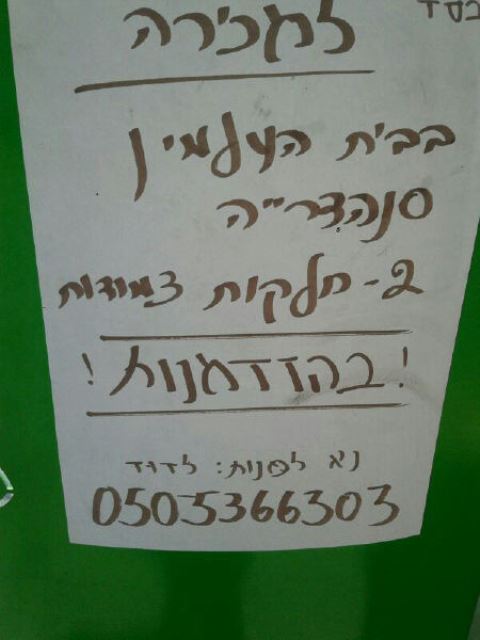 בסד
למכירה
בבית העלמין
סנהדר״יה
2 - חלקות צמודות
! בהזדמנות !
נא לפנות: לדוד
0505366303